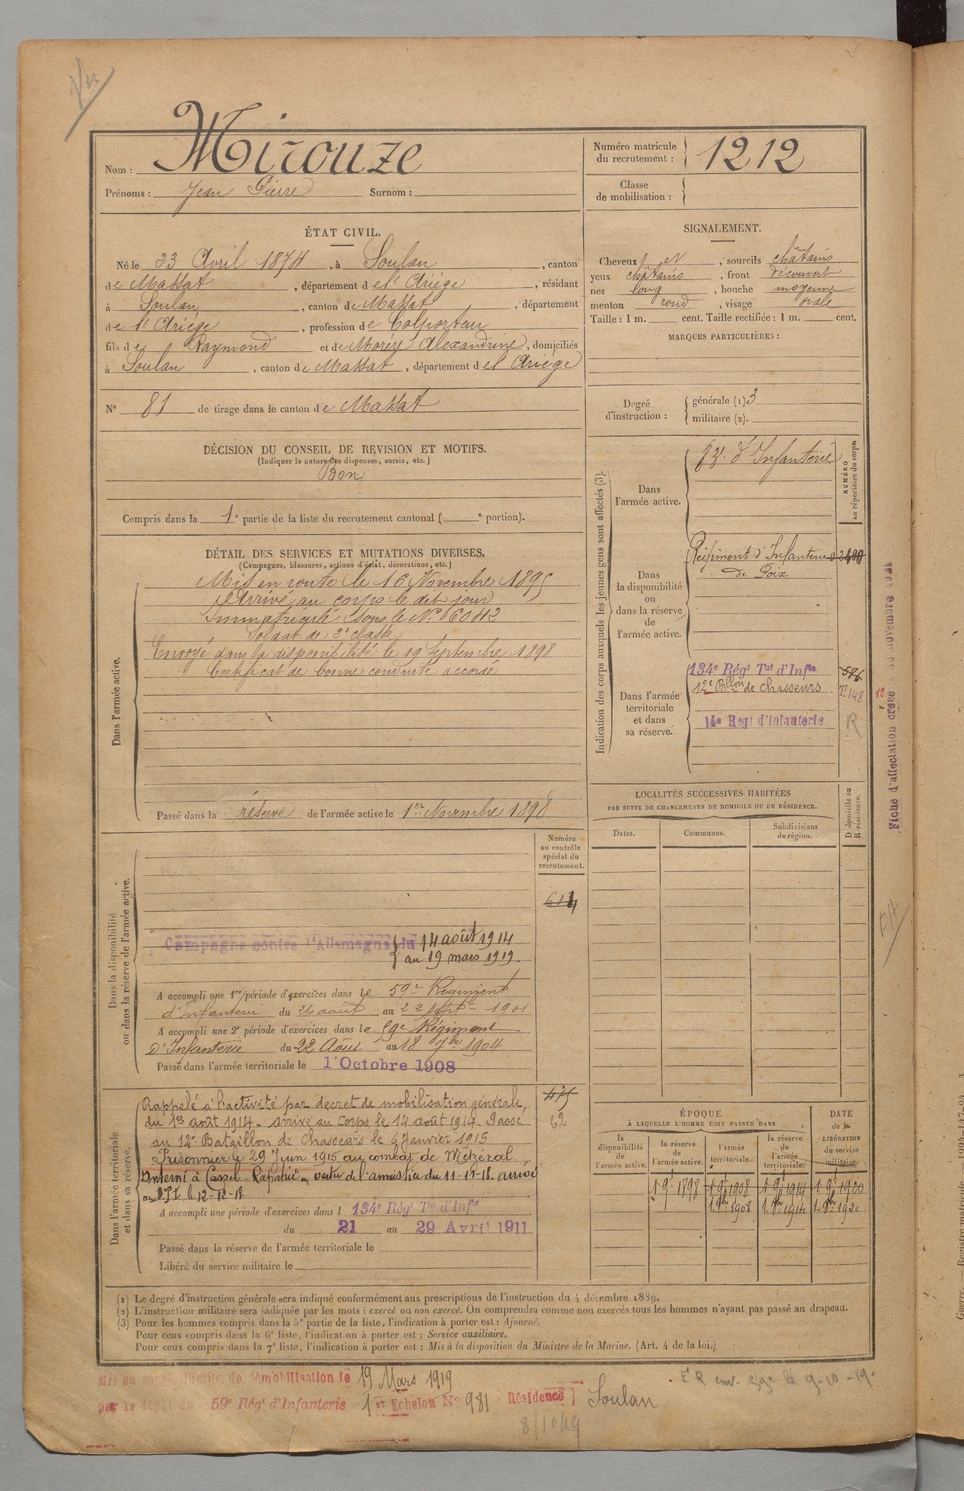 Vu
Nom : Mirouze
Prénoms : Jean Pierre Surnom :
Numéro matricule
du recrutement : 1212
Classe
de mobilisation :
ÉTAT CIVIL.
Né le 23 Avril 1874, à Soulan, canton
de Massat, département de l'Ariège, résidant
à Soulan, canton de Massat, département
de l'Ariège, profession de Colporteur
fils de Raymond et de Morère Alexandrine, domiciliés
à Soulan, canton de Massat, département de l'Ariège
N° 81 de tirage dans le canton de Massat
SIGNALEMENT.
Cheveux et, sourcils châtains
yeux châtains, front découvert
nez long, bouche moyenne
menton rond, visage ovale
Taille : 1 m. cent. Taille rectifiée : 1 m. cent.
MARQUES PARTICULIÈRES :
Degré
d'instruction :
générale (1) 3
militaire (2).
DÉCISION DU CONSEIL DE REVISION ET MOTIFS.
(Indiquer la nature des dispenses, sursis, etc.)
Bon
Compris dans la 1e partie de la liste du recrutement cantonal ( e portion).
DÉTAIL DES SERVICES ET MUTATIONS DIVERSES.
(Campagnes, blessures, actions d'éclat, décorations, etc.)
Dans l'armée active.
Mis en route le 16 Novembre 1895
Arrivé au corps le dit jour
Immatriculé sous le N°
Soldat de 2e classe
Envoyé dans la disponibilité le 19 Septembre 1898
Certificat de bonne conduite accordé
Passé dans la réserve de l'armée active le 1er Novembre 1898
Indication des corps auxquels les jeunes gens sont affectés (3).
NUMÉRO
au répertoire du corps.
Dans
l'armée active.
d'Infanterie
Dans
la disponibilité
ou
dans la réserve
de
l'armée active.
Régiment d'Infanterie
de Foix
Dans l'armée
territoriale
et dans
sa réserve.
134e Régt Tal d'Infie
12e Bllon de chasseurs
14e Régt d'Infanterie
R
Fiche d'affectation créée novembre
LOCALITÉS SUCCESSIVES HABITÉES
PAR SUITE DE CHANGEMENTS DE DOMICILE OU DE RÉSIDENCE.
Dates.
Communes.
Subdivisions
de région.
D domicile ou
R résidence.
Numéro
au contrôle
spécial du
recrutement.
Dans la disponibilité
ou dans la réserve de l'armée active.
Campagne contre l'Allemagne du 14 août 1914
au 19 mars 1919.
A accompli une 1re période d'exercices dans le 59e Régiment
d'Infanterie du 26 août au 22 sept. 1901
A accompli une 2e période d'exercices dans le 59e Régiment
d'Infanterie du 22 Août au 18 7bre 1904
Passé dans l'armée territoriale le 1 Octobre 1908
Dans l'armée territoriale
et dans sa réserve.
475
62
Rappelé à l'activité par décret de mobilisation générale
du 1er août 1914. arrivé au Corps le 14 août 1914. Passé
au 12e Bataillon de Chasseurs le 6 Janvier 1915
Prisonnier le 29 Juin 1915 au combat de Metzeral
Interné à Cassel. Rapatrié en vertu de l'armistice du 11-11-18. arrivé
au le 12-12-18
A accompli une période d'exercices dans l 134e Régt Tal d'Infie
du 21 au 29 Avril 1911
Passé dans la réserve de l'armée territoriale le
Libéré du service militaire le
ÉPOQUE
À LAQUELLE L'HOMME DOIT PASSER DANS
DATE
de la
LIBÉRATION
du service
militaire.
la
disponibilité
de
l'armée active.
la réserve
de
l'armée active.
l'armée
territoriale.
la réserve
de
l'armée
territoriale.
1 9e 1898 1 9e 1908 1 9e 1914 1 9e 1920
1 8bre 1908 1 8bre 1914 1 8bre 1920
(1) Le degré d'instruction générale sera indiqué conformément aux prescriptions de l'instruction du 4 décembre 1889.
(2) L'instruction militaire sera indiquée par les mots : exercé ou non exercé. On comprendra comme non exercés tous les hommes n'ayant pas passé au drapeau.
(3) Pour les hommes compris dans la 5e partie de la liste, l'indication à porter est : Ajourné.
Pour ceux compris dans la 6e liste, l'indication à porter est : Service auxiliaire.
Pour ceux compris dans la 7e liste, l'indication à porter est : Mis à la disposition du Ministre de la Marine. (Art. 4 de la loi.)
Mis en congé illimité de démobilisation le 19 Mars 1919
par le dépôt du 59e Régt d'Infanterie 1er Echelon N° 981 Résidence Soulan